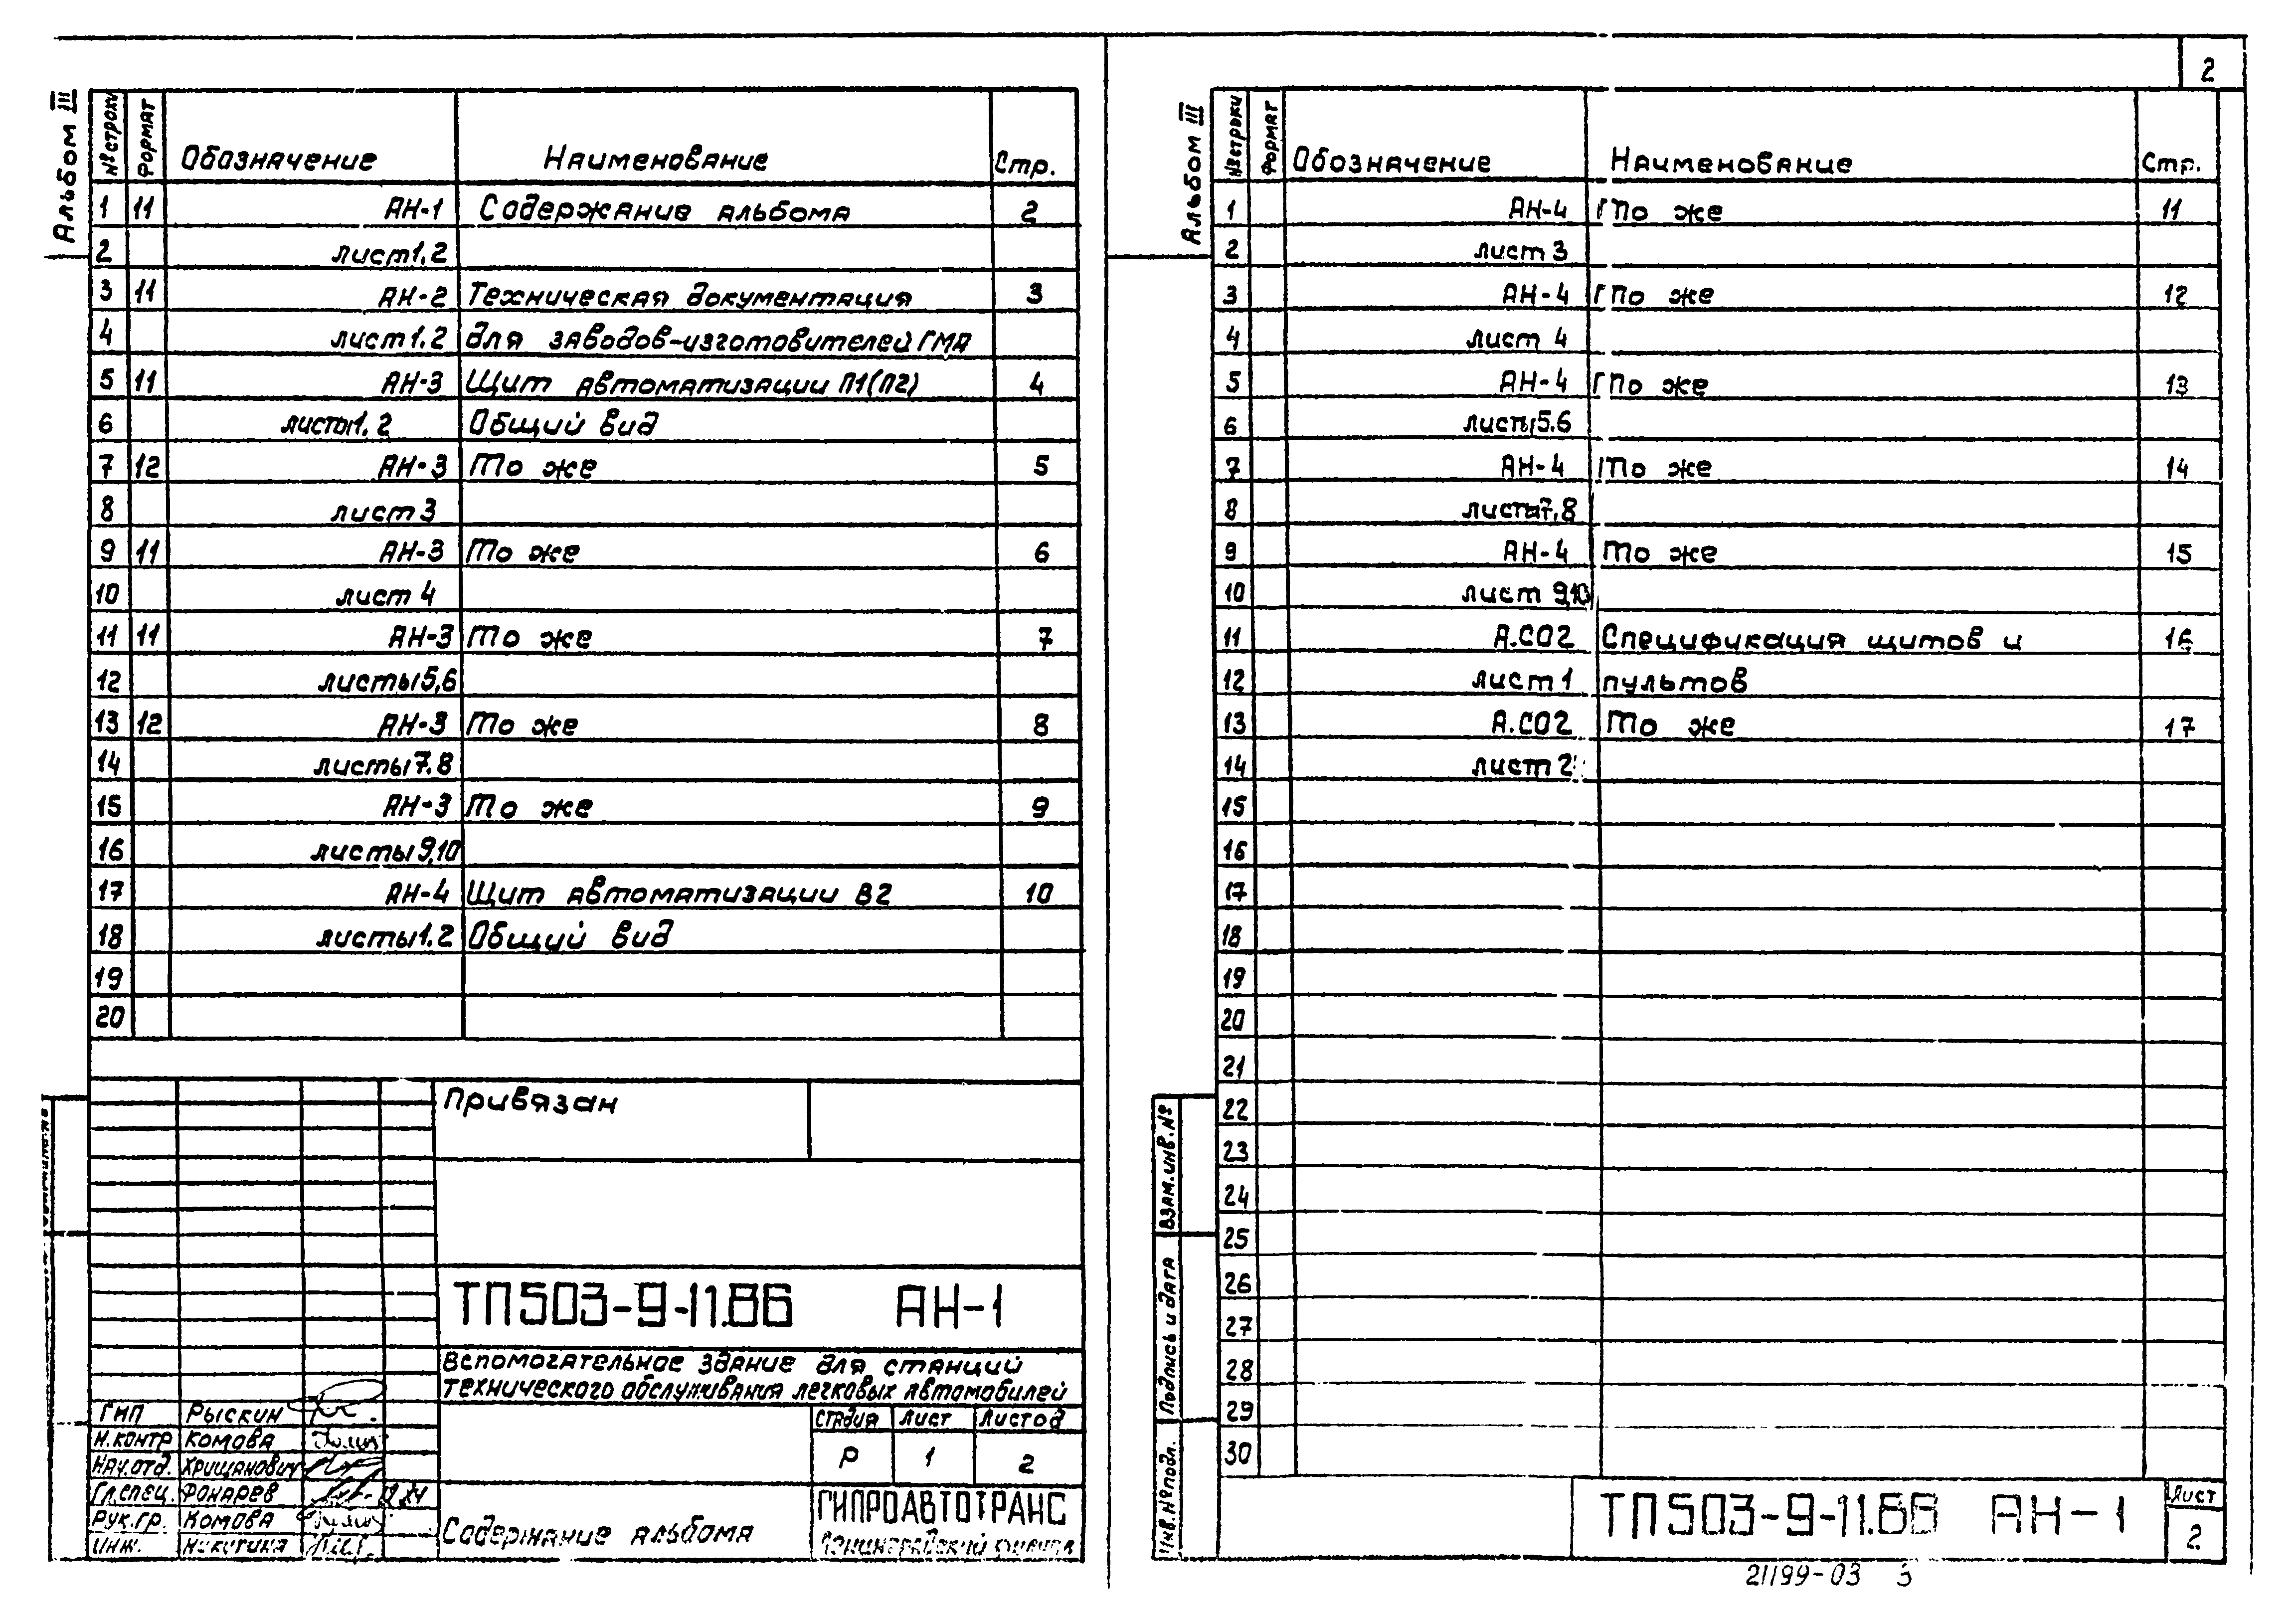 2
Альбом III
№ строки Формат Обозначение Наименование Стр.
1 11 АН-1 Содержание альбома 2
2 лист 1,2
3 11 АН-2 Техническая документация 3
4 лист 1.2 для заводов-изготовителей ГМА
5 11 АН-3 Щит автоматизации П1(П2) 4
6 листы 1, 2 Общий вид
7 12 АН-3 То же 5
8 лист 3
9 11 АН-3 То же 6
10 лист 4
11 11 АН-3 То же 7
12 листы 5,6
13 12 АН-3 То же 8
14 листы 7.8
15 АН-3 То же 9
16 листы 9,10
17 АН-4 Щит автоматизации В2 10
18 листы 1.2 Общий вид
19
20
Привязан
ТП 503-9-11.86 АН-1
Вспомогательное здание для станций
технического обслуживания легковых автомобилей
ГИП Рыскин
Н.контр Комова
Нач.отд. Хрищанович
Гл.спец. Фонарев
Рук.гр. Комова
Инж. Никитина
Стадия Лист Листов
Р 1 2
Содержание альбома
ГИПРОАВТОТРАНС
Ленинградский филиал
Альбом III
№ строки Формат Обозначение Наименование Стр.
1 АН-4 То же 11
2 лист 3
3 АН-4 То же 12
4 лист 4
5 АН-4 То же 13
6 листы 5.6
7 АН-4 То же 14
8 листы 7,8
9 АН-4 То же 15
10 лист 9,10
11 А.СО2 Спецификация щитов и 16
12 лист 1 пультов
13 А.СО2 То же 17
14 лист 2
15
16
17
18
19
20
21
22
23
24
25
26
27
28
29
30
Взам.инв.№
Подпись и дата
Инв.№ подл.
ТП 503-9-11.86 АН-1
Лист
2
21199-03 3